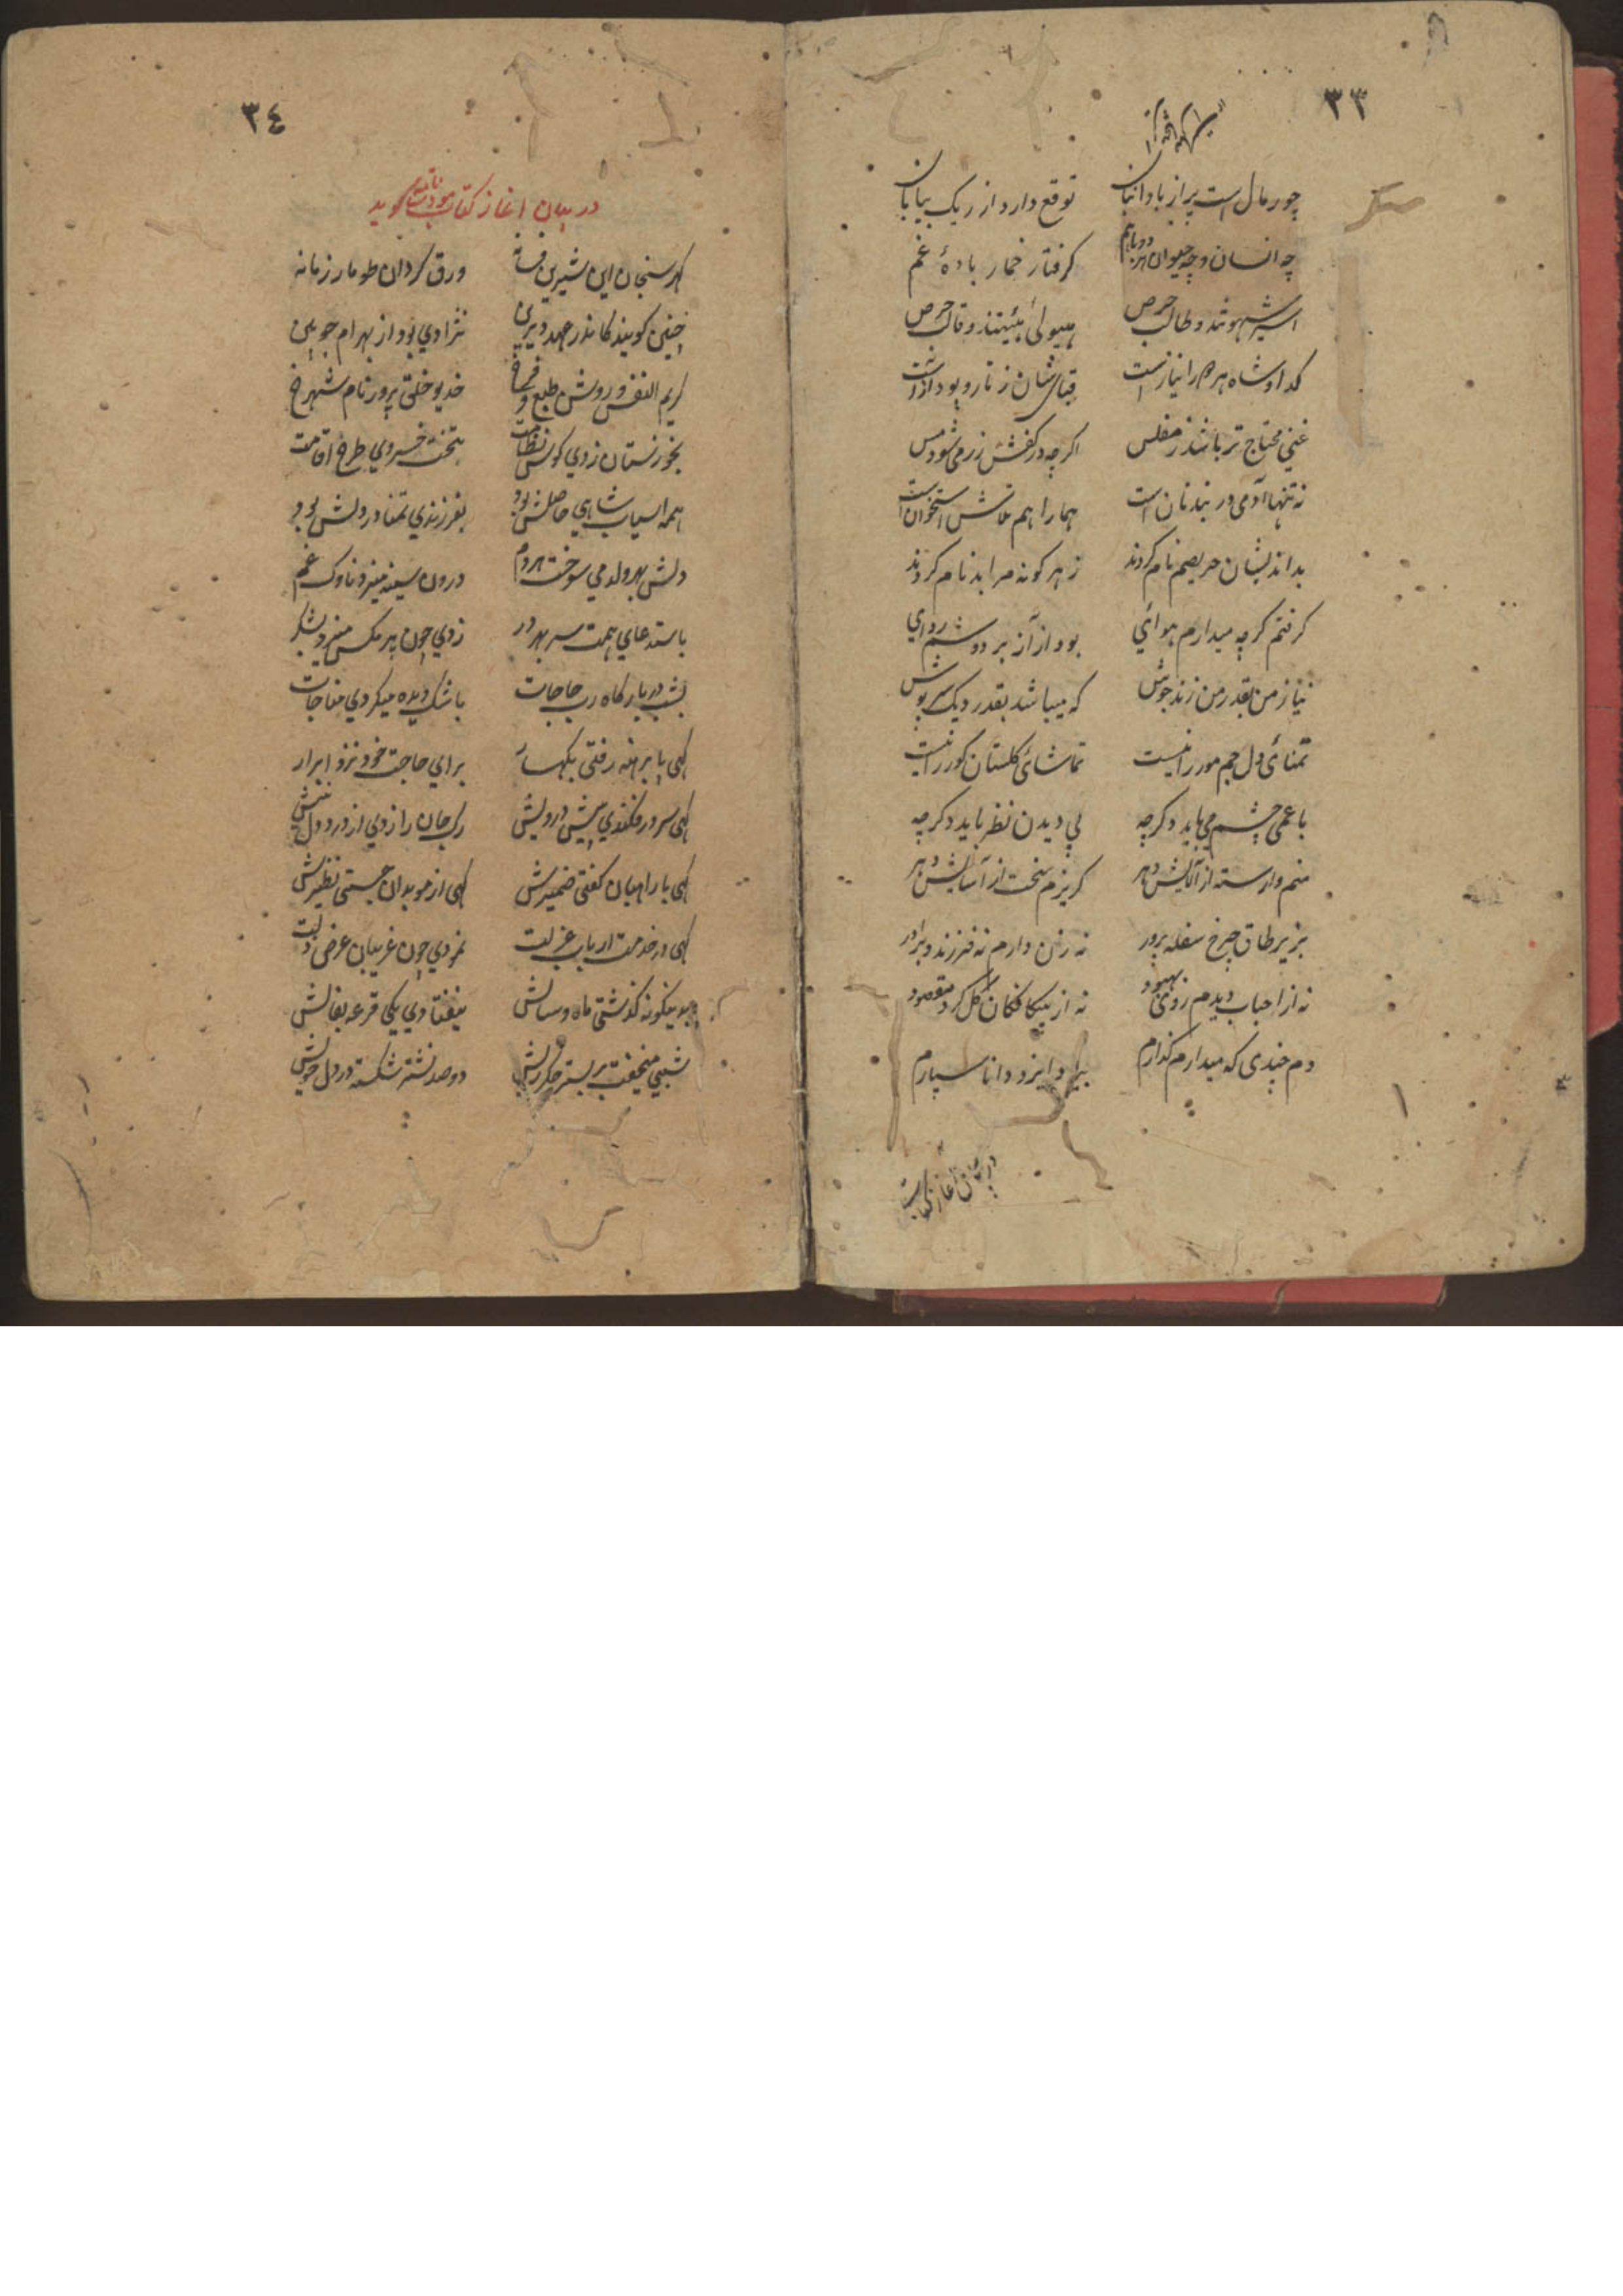 ۳۳
چو رمال است پر از باد انبان توقع دارد از ریک بیابان
چه انسان و چه حیوان هر دو باهم کرفتار خمار بادهٔ غم
اسیر شهوتند و طالب حرص هیولیٰ هیئتند و قالب حرص
کدا و شاه هر دم را نیاز است قبای شان ز تار و پود آز است
غنی محتاج تر باشد ز مفلس اکرچه در کفش زر می شود مس
نه تنها آدمی در بند نان است هما را هم تلاش استخوان است
بد اندیشان حریصم نام کردند ز هر کونه مرا بدنام کردند
کرفتم کرچه میدارم هوائی بود از آز بر دوشم ردای
نیاز من بقدر من زند جوش که میباشد بقدر دیک سرپوش
تمنائ دل جم مور را نیست تماشائ کلستان کور را نیست
باعمی چشم می باید دکر چه پی دیدن نظر باید دکر چه
منم وارسته از آلایش دهر کریزم سخت از آسایش دهر
بزیر طاق چرخ سفله پرور نه زن دارم نه فرزند و برادر
نه از احباب دیدم روی بهبود نه از بیکانکان کل کرد مقصود
دم چندی که میدارم کذارم بیاد ایزد دانا سپارم
در بیان آغاز کتاب
۳٤
در بیان اغاز کتاب کوید
کهر سنجان این شیرین فسانه ورق کردان طومار زمانه
چنین کویند کاندر عهد دیرین نژادی بود از بهرام چوبین
کریم النفس و روشن طبع و فرخ خدیو خلق پرور نام شهرخ
بخوزستان زدی کوس نظامت بتخت خسروی طرح اقامت
همه اسباب شاهی حاصلش بود بفرزندی تمنا در دلش بود
دلش بهر ولد می سوخت هر دم درون سینه میزد ناوک غم
باستدعای همت سر بهر در زدی چون هر مکس میزد بشکر
بشب در بارکاه رب حاجات باشک دیده میکردی مناجات
کهی پا برهنه رفتی بکهسار برای حاجت خود نزد ابرار
کهی سر در فکندی پیش درویش رک جان را زدی از درد دل نیش
کهی با راهبان کفتی ضمیرش کهی از موبدان جستی نظیرش
کهی در خدمت ارباب عزلت نمودی چون غریبان عرض دولت
بدینکونه کذشتی ماه و سالش نیفتادی یکی قرعه بفالش
شبی میخفت بر بستر جکر ریش دو صد نشتر شکسته در دل خویش